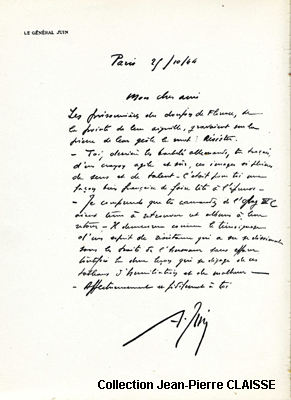 LE GÉNÉRAL JUIN
Paris 25/10/44
Mon cher ami
Les prisonnières du donjon de Flavie, de
la pointe de leur aiguille, gravaient sur la
pierre de leur geôle le mot : Résistez.
- Toi, derrière les barbelés allemands, tu traçais,
d'un crayon agile et sûr, ces images si pleines
de sens et de talent - c'était pour toi une
façon très française de faire tête à l'épreuve -
- Je comprends que tes camarades de l'oflag
aient tenu à retrouver cet album à leur
retour - Il demeurera comme le témoignage
d'un esprit de résistance qui a su se dissimuler
sous le voile de l'humour sans
la leçon qui se dégage de ces
tableaux d'humiliation et de malheur -
- Affectueusement et fidèlement à toi
A. Juin
Collection Jean-Pierre CLAISSE